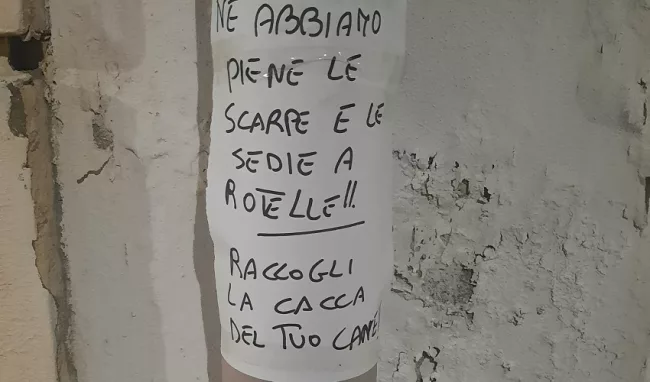 NE ABBIAMO
PIENE LE
SCARPE E LE
SEDIE A
ROTELLE!!
RACCOGLI
LA CACCA
DEL TUO CANE!